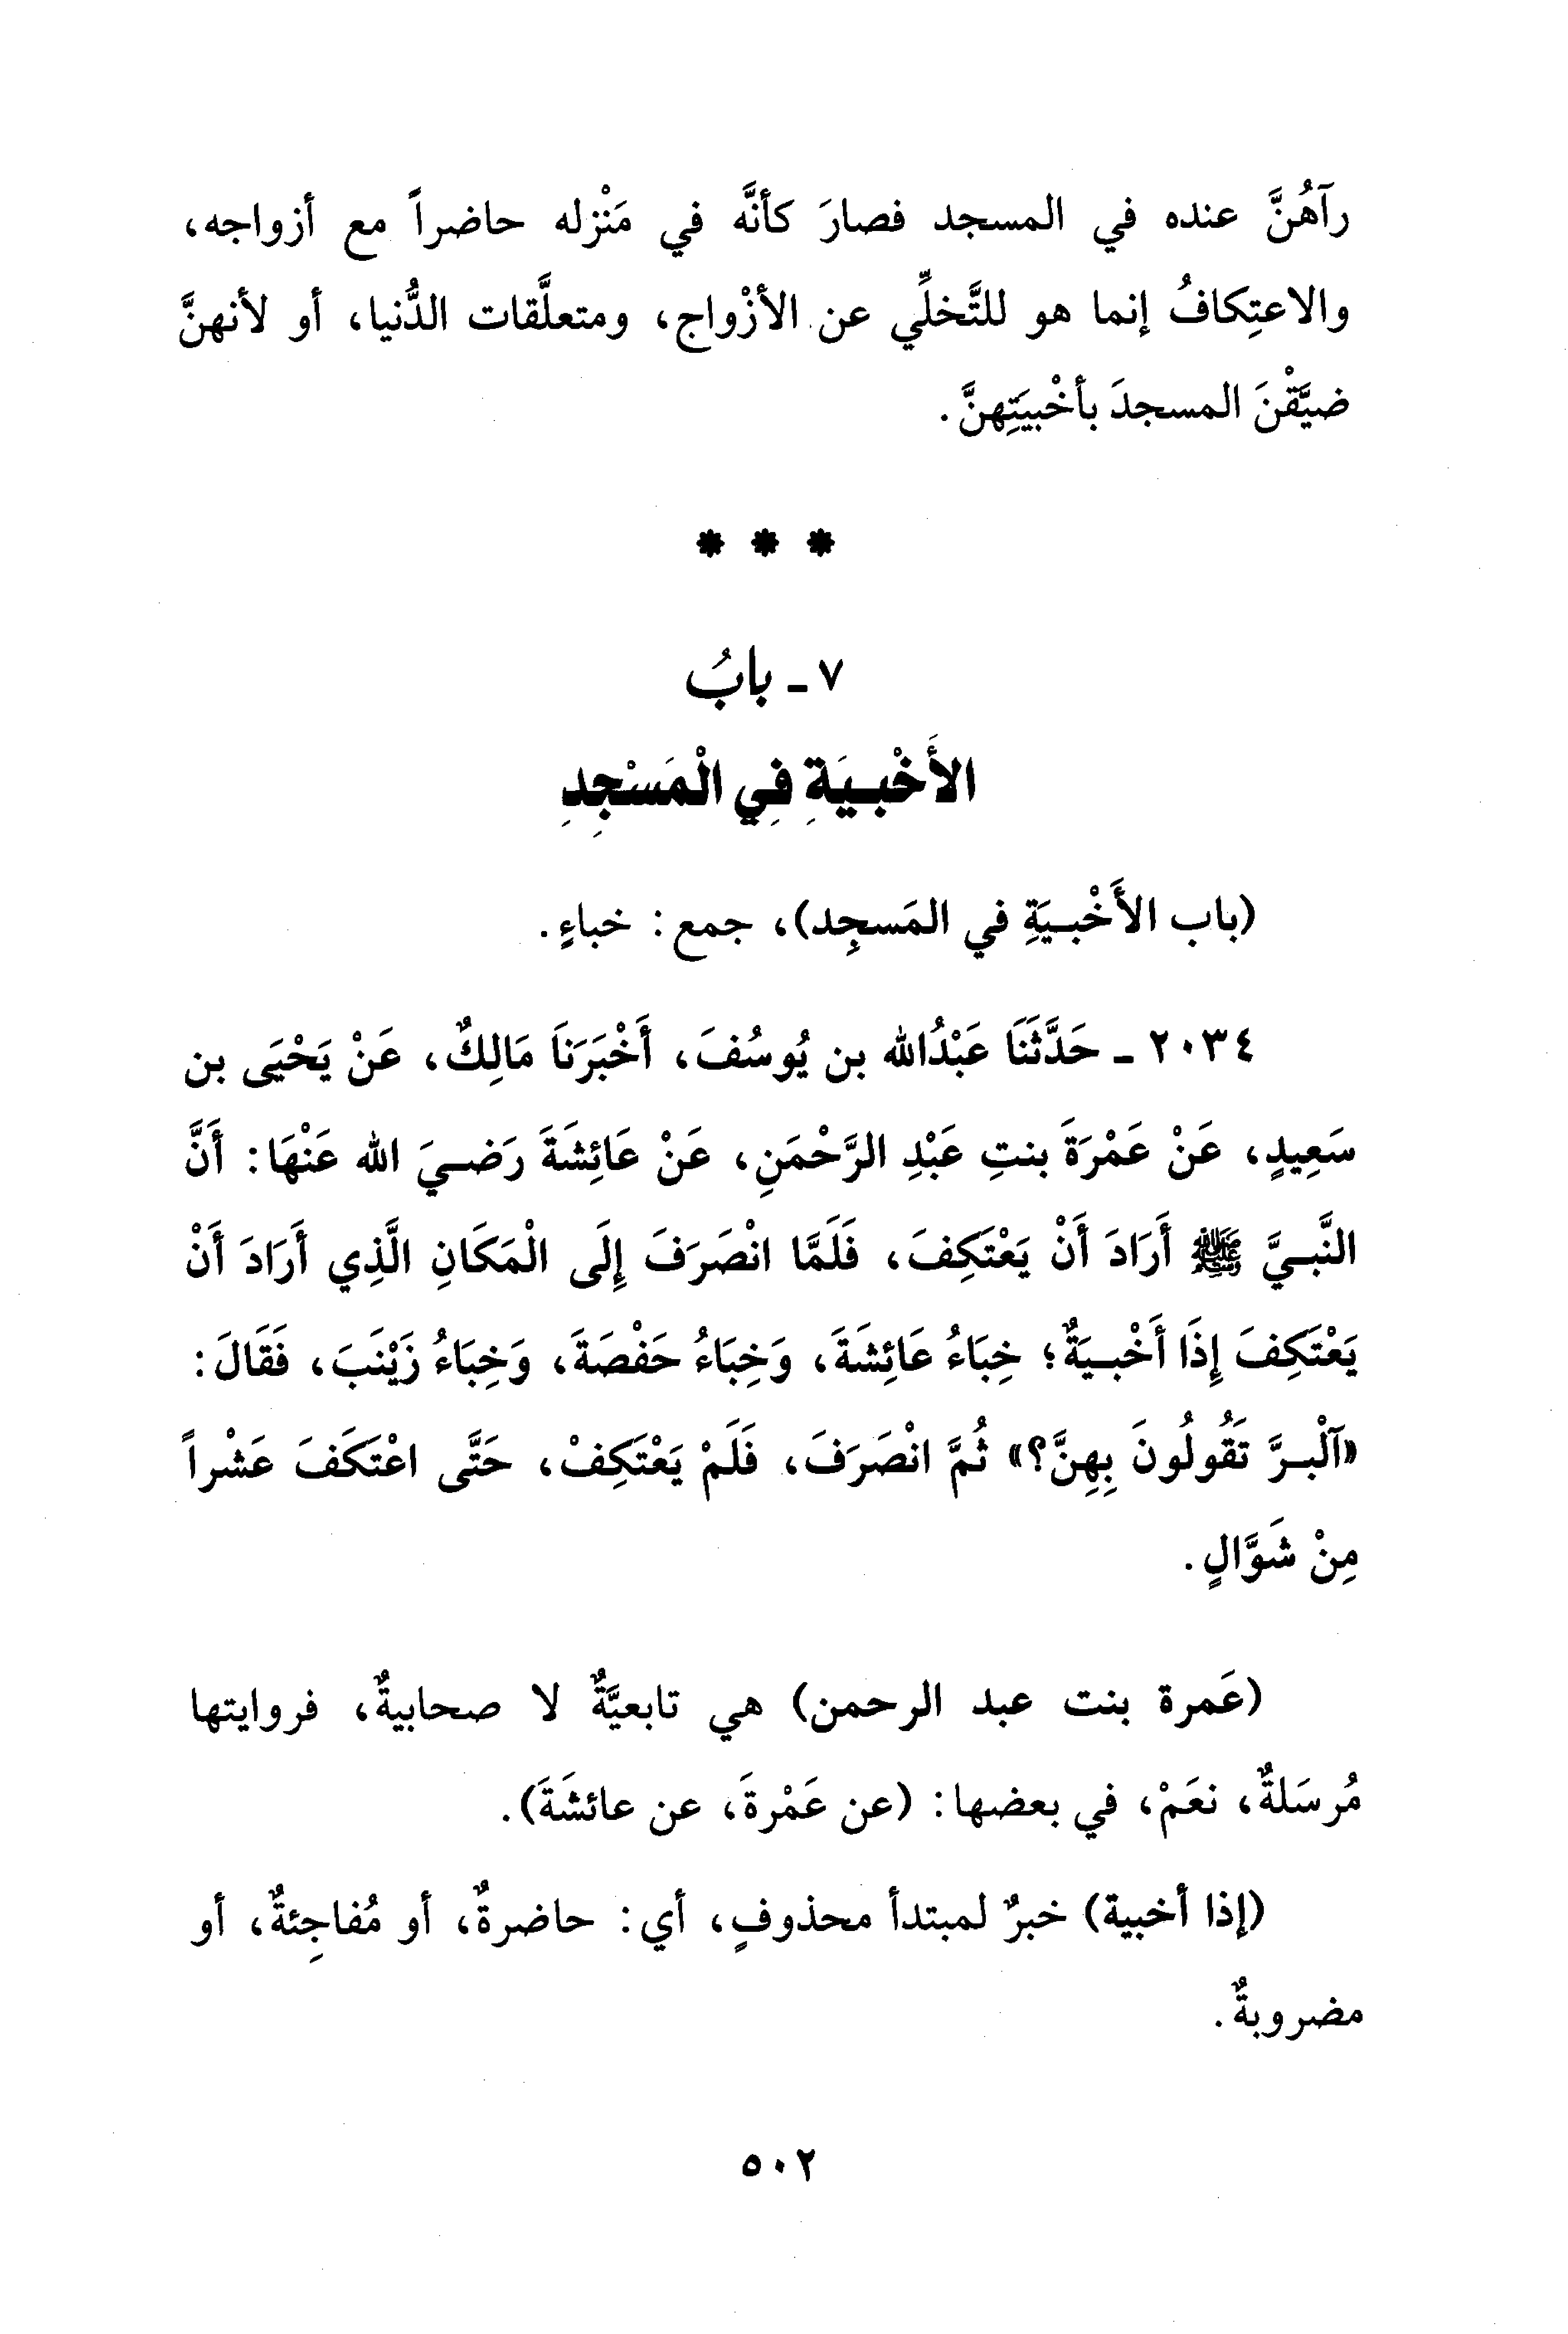 رآهُنَّ عنده في المسجد فصارَ كأنَّه في مَنْزله حاضراً مع أزواجه،
والاعتِكافُ إنما هو للتَّخلِّي عن الأزْواج، ومتعلَّقات الدُّنيا، أو لأنهنَّ
ضيَّقْنَ المسجدَ بأخْبيَتِهنَّ.
* * *
٧ - بابُ
الأَخْبِيَةِ فِي الْمَسْجِدِ
(باب الأَخْبيَةِ في المَسجِد)، جمع: خباءٍ.
٢٠٣٤ - حَدَّثَنَا عَبْدُالله بن يُوسُفَ، أَخْبَرَنَا مَالِكٌ، عَنْ يَحْيَى بن
سَعِيدٍ، عَنْ عَمْرَةَ بنتِ عَبْدِ الرَّحْمَنِ، عَنْ عَائِشَةَ رَضيَ الله عَنْهَا: أَنَّ
النَّبيَّ ﷺ أَرَادَ أَنْ يَعْتَكِفَ، فَلَمَّا انْصَرَفَ إِلَى الْمَكَانِ الَّذِي أَرَادَ أَنْ
يَعْتَكِفَ إِذَا أَخْبيَةٌ؛ خِبَاءُ عَائِشَةَ، وَخِبَاءُ حَفْصَةَ، وَخِبَاءُ زَيْنَبَ، فَقَالَ:
«آلْبرَّ تَقُولُونَ بِهِنَّ؟» ثُمَّ انْصَرَفَ، فَلَمْ يَعْتَكِفْ، حَتَّى اعْتَكَفَ عَشْراً
مِنْ شَوَّالٍ.
(عَمرة بنت عبد الرحمن) هي تابعيَّةٌ لا صحابيةٌ، فروايتها
مُرسَلةٌ، نعَمْ، في بعضها: (عن عَمْرةَ، عن عائشَةَ).
(إذا أخبية) خبرٌ لمبتدأ محذوفٍ، أي: حاضرةٌ، أو مُفاجِئةٌ، أو
مضروبةٌ.
٥٠٢